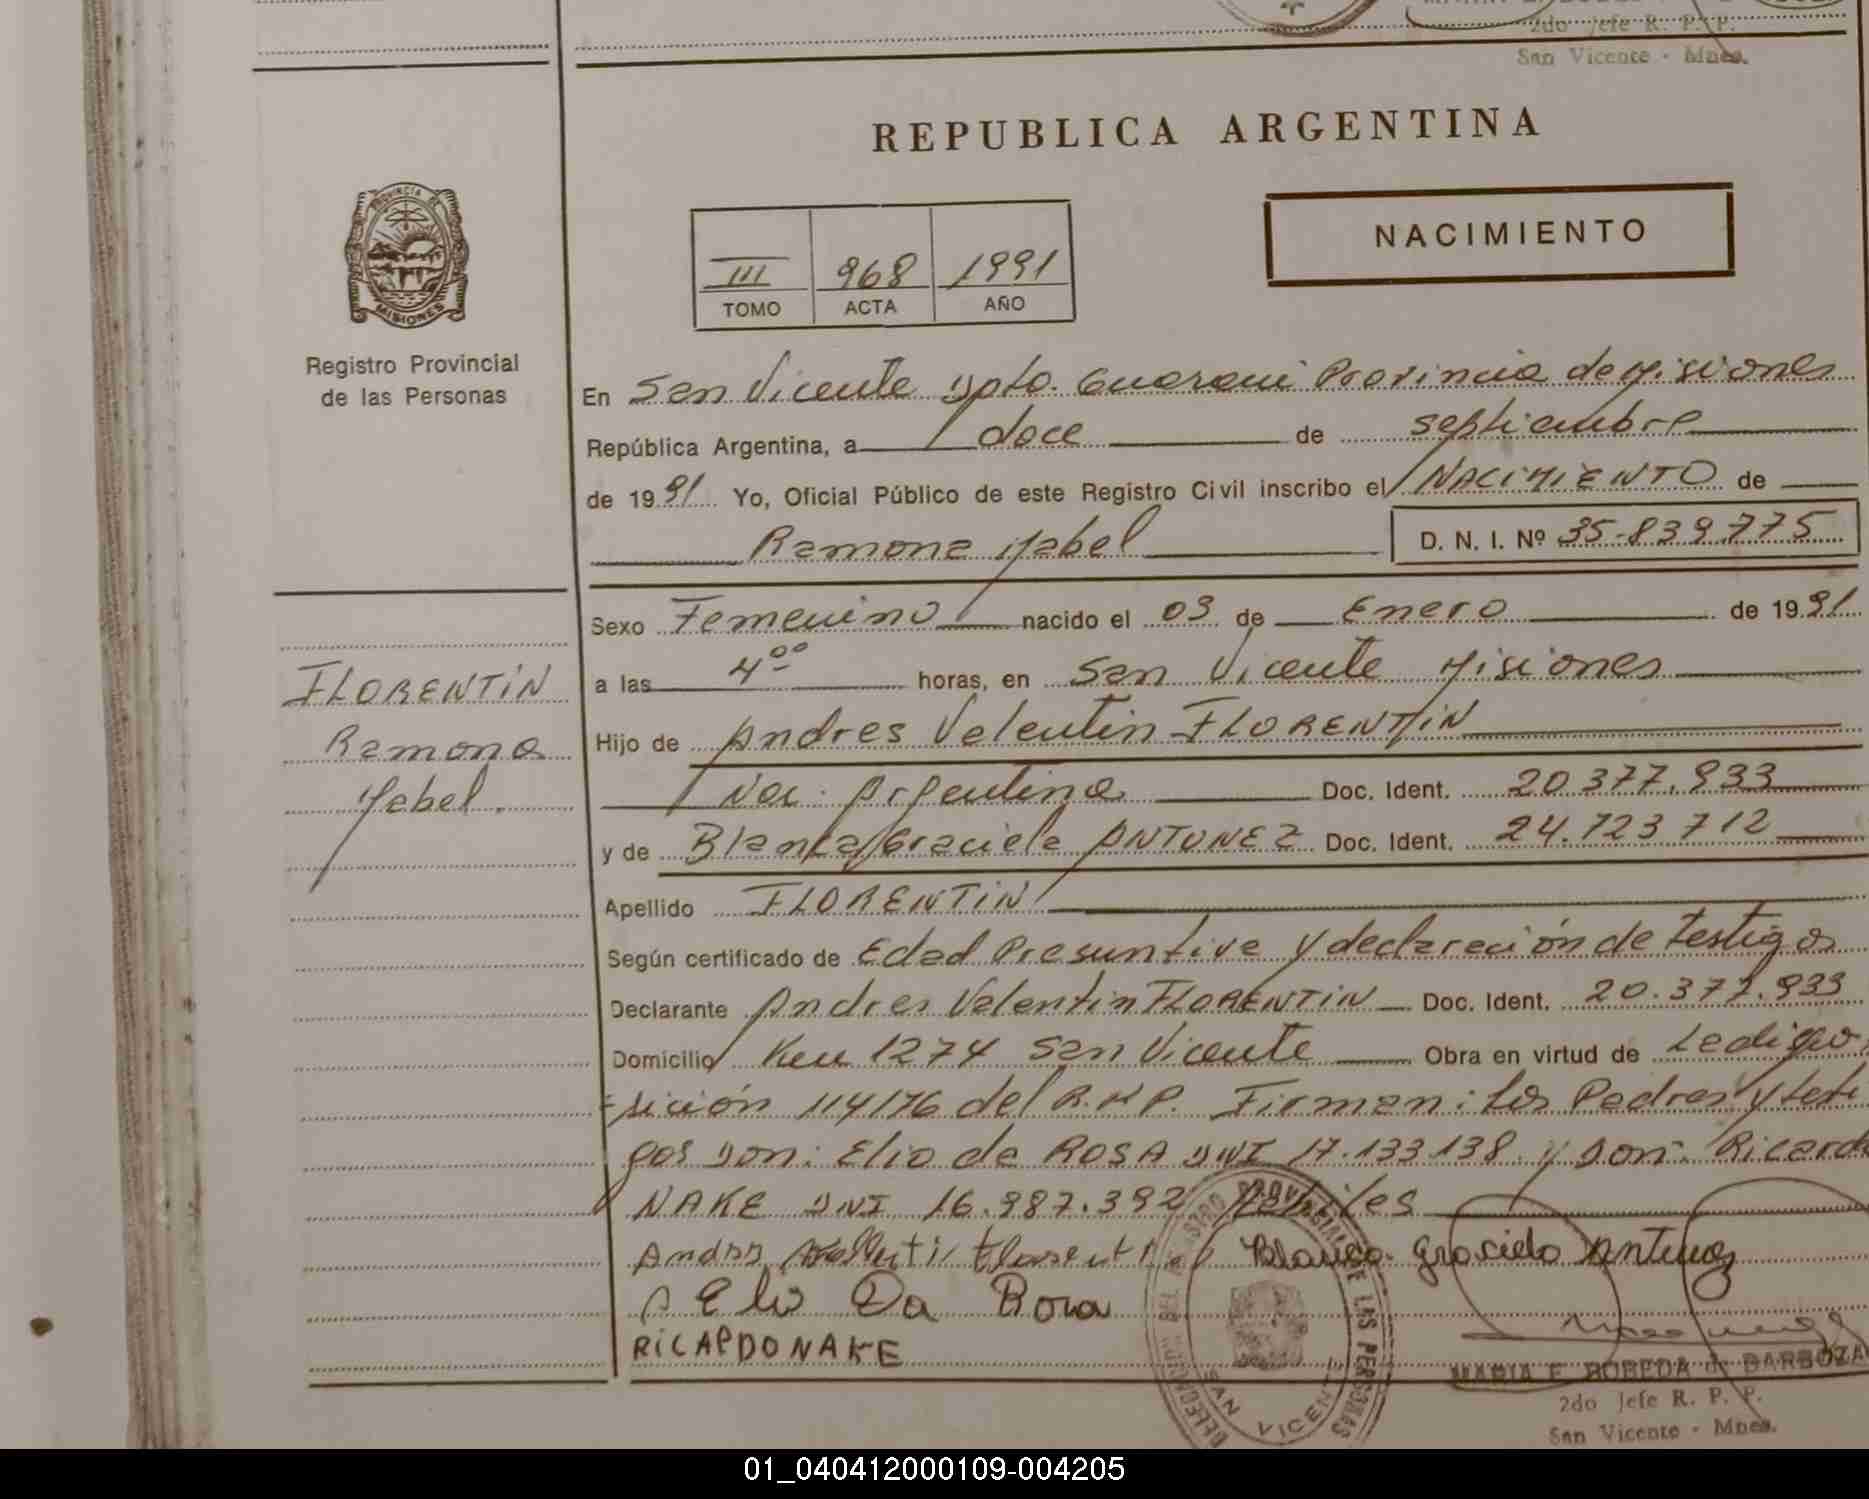 2do Jefe R. P. P.
San Vicente - Mnes.
REPUBLICA ARGENTINA
NACIMIENTO
III 968 1991
TOMO ACTA AÑO
PROVINCIA DE MISIONES
Registro Provincial
de las Personas
En San Vicente Dpto. Guarani Provincia de Misiones
República Argentina, a doce de septiembre
de 1991 Yo, Oficial Público de este Registro Civil inscribo el NACIMIENTO de
Ramona Mabel D. N. I. Nº 35.839.775
Sexo Femenino nacido el 03 de Enero de 1991
a las 4 00 horas, en San Vicente Misiones
FLORENTIN
Ramona
Mabel.
Hijo de Andres Valentin FLORENTIN
Nac. Argentina Doc. Ident. 20.377.933
y de Blanca Graciela ANTUNEZ Doc. Ident. 24.723.712
Apellido FLORENTIN
Según certificado de Edad Presuntiva y declaración de testigos
Declarante Andres Valentin FLORENTIN Doc. Ident. 20.377.933
Domicilio Km 1274 San Vicente Obra en virtud de La dispo-
sición 114/76 del R.N.P. Firman: Los Padres y testi
gos Don: Elio da ROSA DNI 17.133.138 y Don: Ricardo
NAKE DNI 16.987.392 hábiles
Blanca Graciela Antunez
Elio Da Rosa
RICARDO NAKE
DELEGACION DEL REGISTRO PROVINCIAL DE LAS PERSONAS
SAN VICENTE
MARIA E. ROBEDA de BARBOZA
2do Jefe R. P. P.
San Vicente - Mnes.
01_040412000109-004205